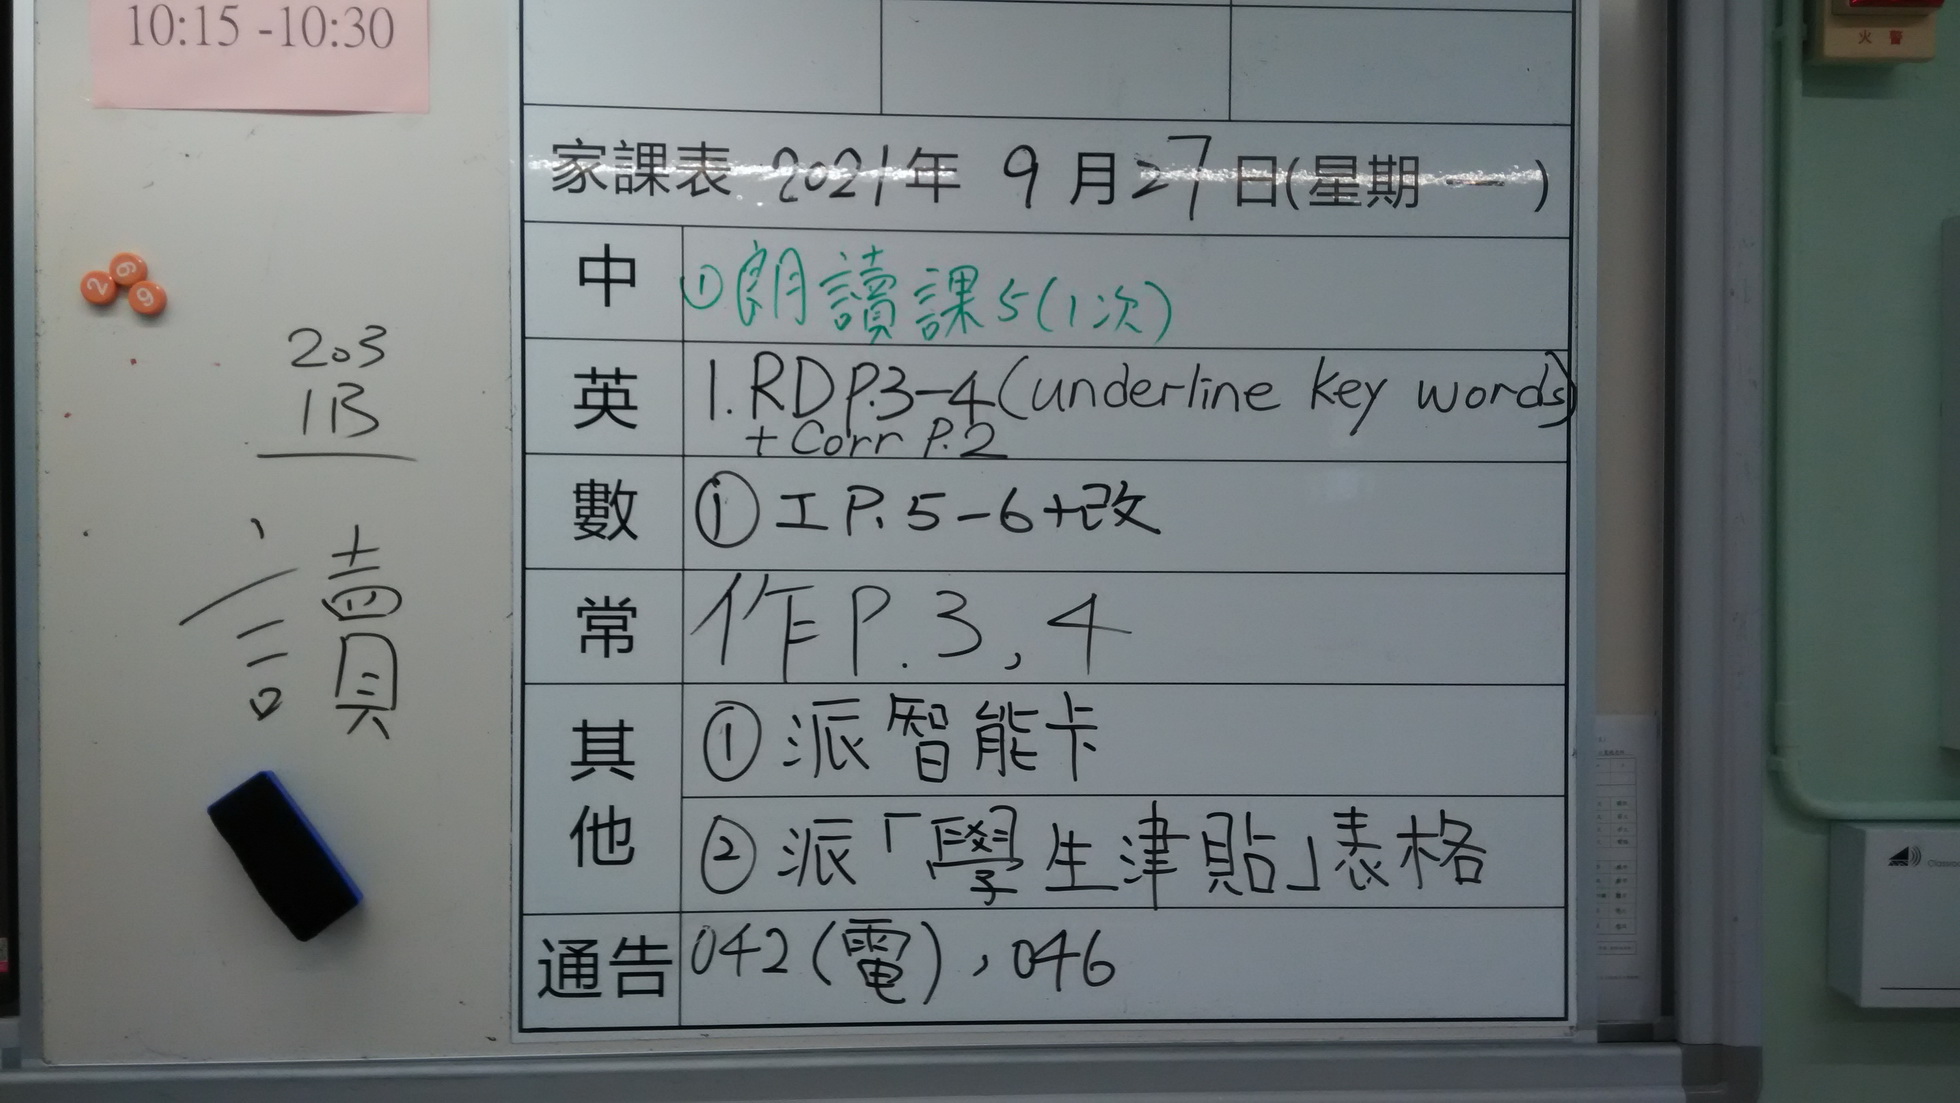 10:15 -10:30
火警
家課表 2021年 9月27日(星期一)
中 ①朗讀課5(1次)
英 1. RD P.3-4 (underline key words)
+ Corr P.2
數 ① 工 P. 5-6+改
常 作 P. 3, 4
其他 ① 派智能卡
② 派「學生津貼」表格
通告 042 (電), 046
2 6 9
203
1B
讀